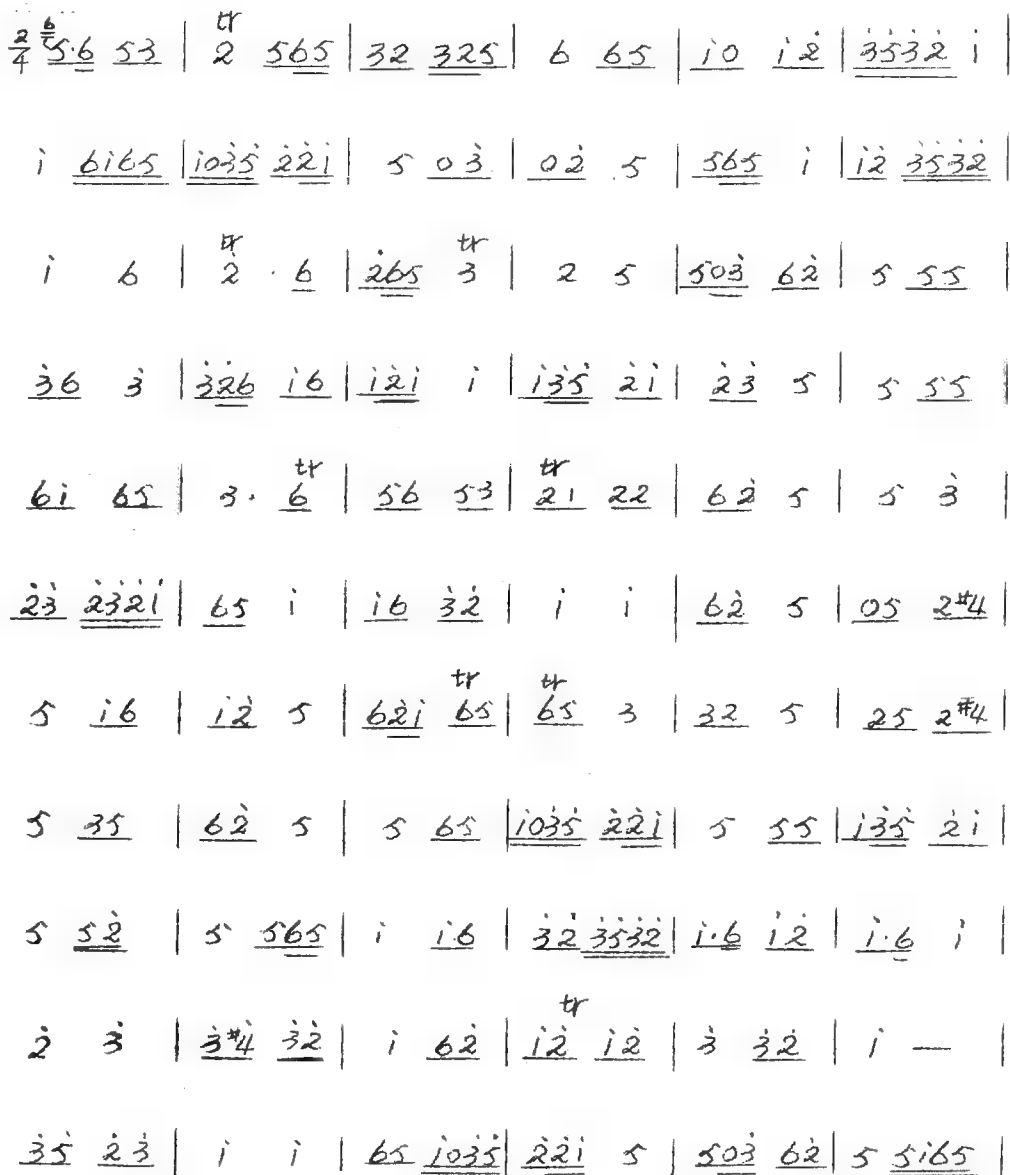 2/4 6 5·6 53 | tr 2 565 | 32 325 | 6 65 | i0 i2̇ | 3̇5̇3̇2̇ i |
i 6i65 | i03̇5̇ 2̇2̇i | 5 03̇ | 02̇ 5 | 565 i | i2̇ 3̇5̇3̇2̇ |
i 6 | tr 2̇ · 6 | 2̇65 tr 3 | 2 5 | 503̇ 62̇ | 5 55 |
3̇6 3̇ | 3̇2̇6 i6 | i2̇i i | i3̇5̇ 2̇i | 2̇3̇ 5 | 5 55 |
6i 65 | 3· tr 6 | 56 53 | tr 21 22 | 62̇ 5 | 5 3̇ |
2̇3̇ 2̇3̇2̇i | 65 i | i6 3̇2̇ | i i | 62̇ 5 | 05 2#4 |
5 i6 | i2̇ 5 | 62̇i tr 65 | tr 65 3 | 32 5 | 25 2#4 |
5 35 | 62̇ 5 | 5 65 | i03̇5̇ 2̇2̇i | 5 55 | i3̇5̇ 2̇i |
5 52̇ | 5 565 | i i6 | 3̇2̇ 3̇5̇3̇2̇ | i·6 i2̇ | i·6 i |
2̇ 3̇ | 3̇#4̇ 3̇2̇ | i 62̇ | tr i2̇ i2̇ | 3̇ 3̇2̇ | i — |
3̇5̇ 2̇3̇ | i i | 65 i03̇5̇ | 2̇2̇i 5 | 503̇ 62̇ | 5 5i65